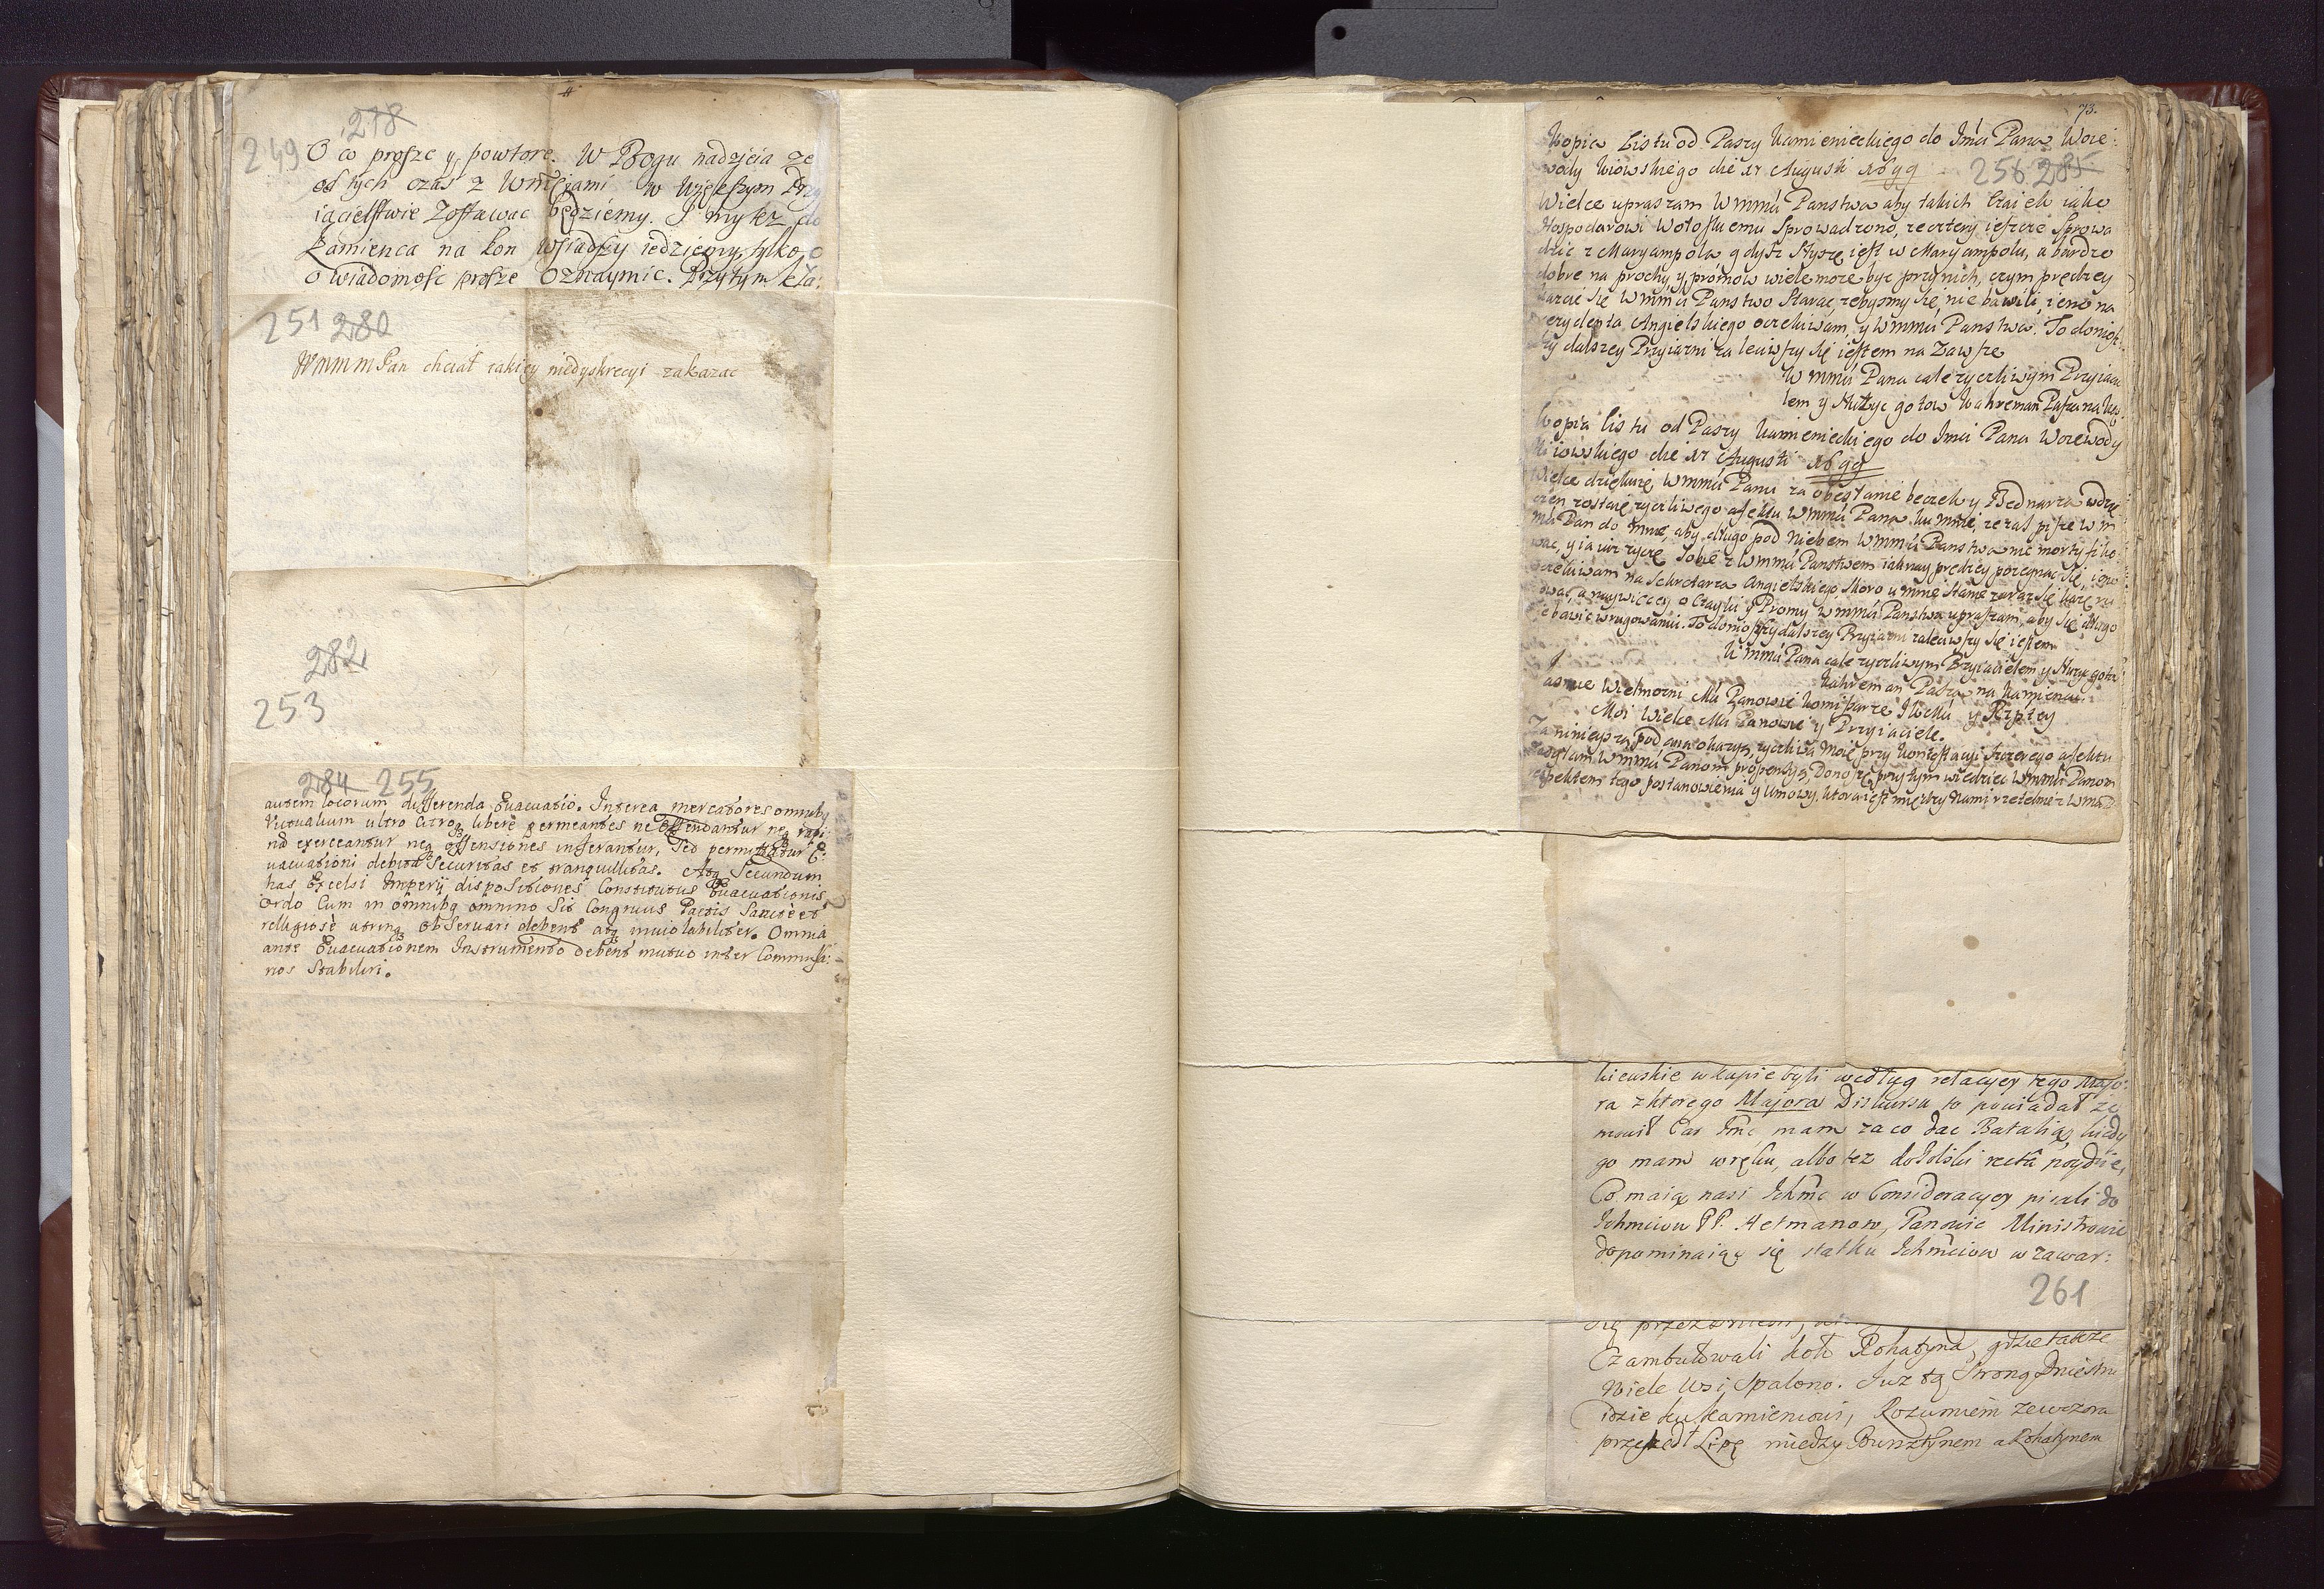 278
249
O co proszę y powtore. W Bogu nadzieia ze
od tych czas z Wmciami w Większym Przy
iacielstwie Zostawac będziemy. I my tez do
Kamienca na kon wsiadszy iedziemy, tylko o
o wiadomosc prosze Oznaymic. Przytym
251 280
WMMM Pan chciał takiey niedyskrecyi zakazac
282
253
284 255
autem locorum differenda Evacuatio. Interea mercatores omniby
Victualium ultro citroq libere permeantes ne offendantur neq rapi:
na exerceantur neq offensiones inferantur, Sed permittatur E:
vacuationi debita Securitas et tranquillitas. Atq Secundum
has Excelsi Imperij dispositiones Constitutus Evacuationis
Ordo Cum in omnibq omnino Sit Congruus Pactis Sancte et
religiosè utrinq observari debent atq inviolabiliter. Omnia
ante Evacuationem Instrumento debent mutuo inter Commissa:
rios Stabiliri.
73.
Kopia Listu od Paszy Kamienieckiego do Imci Pana Woie:
wody Kiowskiego die 11 Augusti 1699
256 285
Wielce upraszam Wmmci Panstwa aby takich Czaiek iako
Hospodarowi Wołoskiemu Sprowadzono, ze cztery ieszcze Sprowa
dzic z Maryampola gdysz Słyszę iest w Maryampolu, a bardzo
dobre na prochy, y promow wiele moze byc przy nich, czym prędzey
Wmmci Panstwo Starac zebysmy się nie bawili, ieno na
Angielskiego oczekiwam y Wmmci Panstwa. To doniosszy
dalszey Przyiazni zaleciwszy się iestem na Zawsze
Wmmci Pana cale zyczliwym Przyiacie
lem y Słuzyc gotow Kahreman Pasza na
Kopia listu od Paszy Kamienieckiego do Imci Pana Woiewody
Kiiowskiego die 17 Augusti 1699
Wielce dziękuię Wmmci Panu za obesłanie beczek y Bednarza wdzię
czen zostaię zyczliwego afektu Wmmci Pana ku mnie, ze zas pisze Wm
mci Pan do mnie, aby długo pod Niebem Wmmci Panstwa nie mortyfiko
wac, y ia iuz zyczę Sobie z Wmmci Panstwem iaknay prędzey pozegnac się, ieno
oczekiwam na Sekretarza Angielskiego, Skoro u mnie Stanie zaraz się kazę ru
szac, a naywięcey o Czayki y Promy Wmmci Panstwa upraszam, aby się długo
nie bawic w rugowaniu. To doniosszy dalszey Przyiazni zaleciwszy się iestem
Wmmci Pana cale zyczliwym Przyiacielem y Słuzyc gotow
Kahreman Pasza na Kamiencu.
Jasnie Wielmozni Mci Panowie Komisarze JKMci y Rzptey
Moi Wielce Mci Panowie y Przyiaciele.
Za ninieyszą podana okazyą zyczliwą moię przy kontestacyi szczerego afektu
Wmmci Panom propensyą, Donoszę przytym wiedziec Wmmci Panom
respektem tego postanowienia y Umowy, ktora iest między Nami rzetelnie z Wmci
kiewskie w kupie byli według relacyey tego Majo:
ra z ktorego Majora Diskursu to powiadał ze
mowił Car Jmc, mam za co dac Batalią, kiedy
go mam w ręku, albo tez do Polski rectâ poydzie,
Co maią nasi Ichmc w Consideracyey pisali do
Ichmciow PP. Hetmanow, Panowie Ministrowie
dopominaiąc się statku Ichmciow w zawar:
261
Czambułowali koło Rohatyna, gdzie takze
Wiele Wsi spalono. Juz tą Stroną Dniestru
idzie ku Kamiencowi, Rozumiem ze wczora
przeszedł Lipę miedzy Bursztynem a Rohatynem